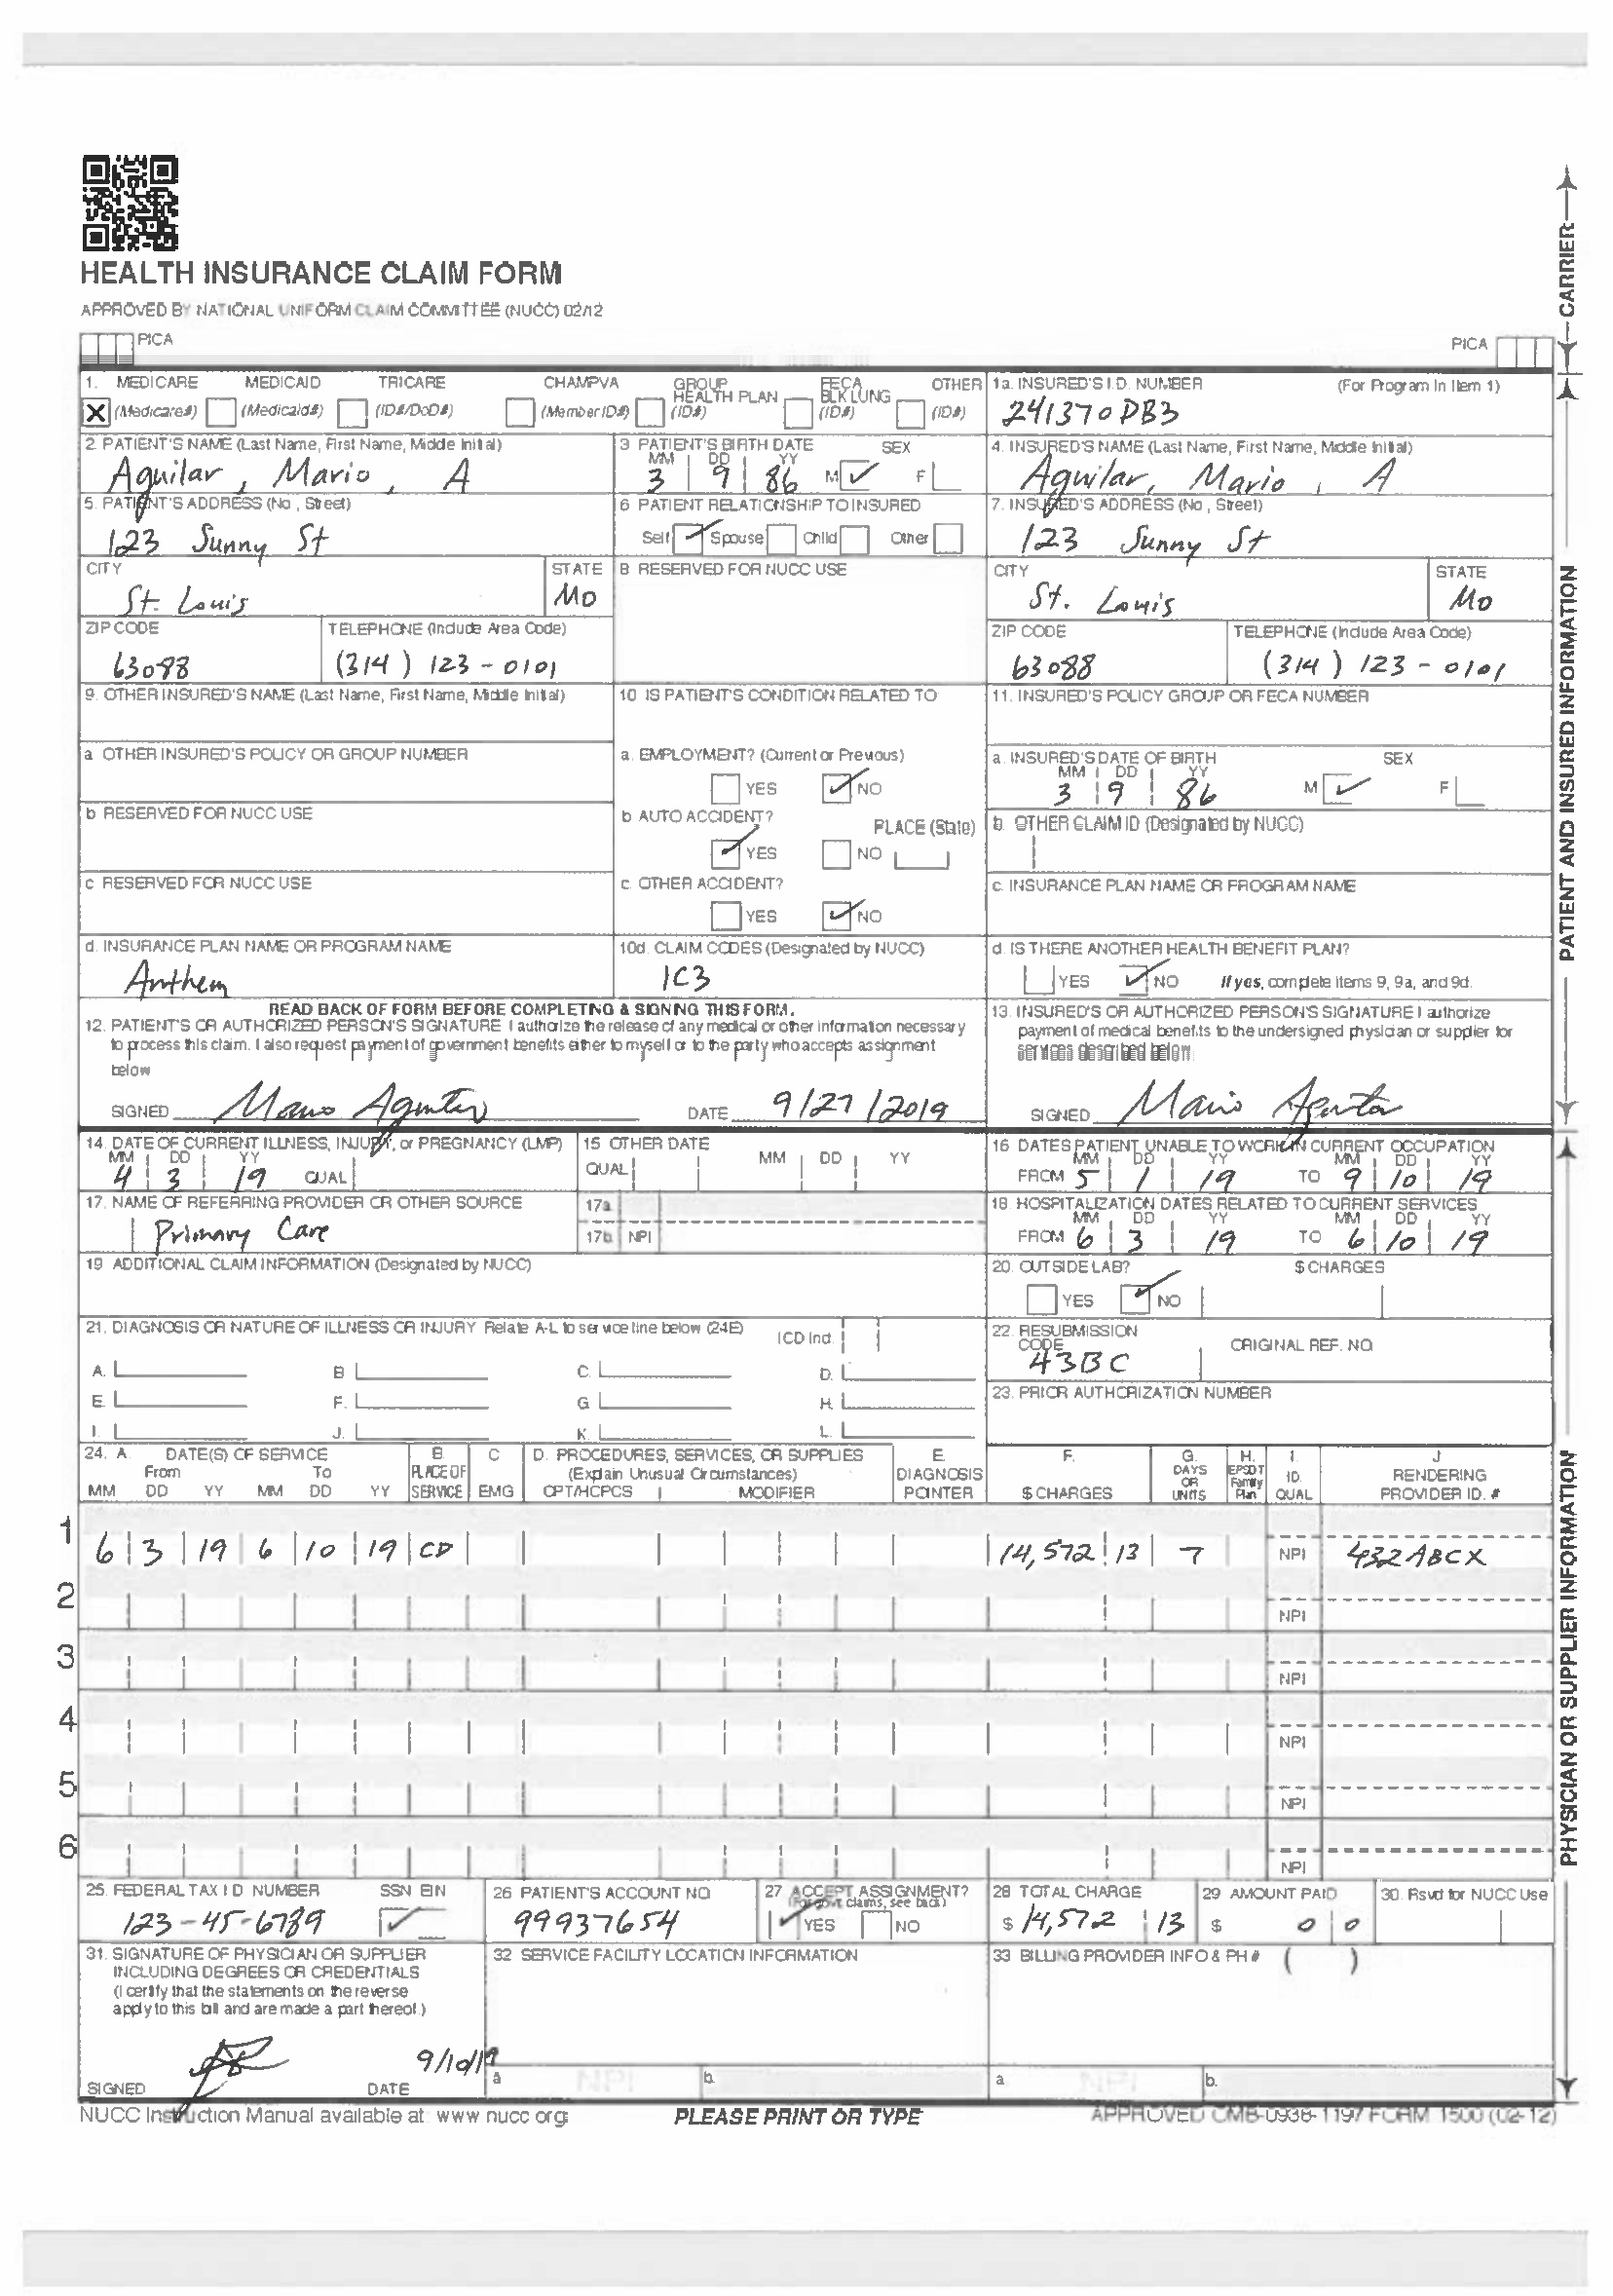 HEALTH INSURANCE CLAIM FORM
APPROVED BY NATIONAL UNIFORM CLAIM COMMITTEE (NUCC) 02/12
PICA
PICA
CARRIER
1. MEDICARE MEDICAID TRICARE CHAMPVA GROUP HEALTH PLAN FECA BLK LUNG OTHER
(Medicare#) (Medicaid#) (ID#/DoD#) (Member ID#) (ID#) (ID#) (ID#)
1a. INSURED'S I.D. NUMBER (For Program in Item 1)
241370DB3
2. PATIENT'S NAME (Last Name, First Name, Middle Initial)
Aguilar, Mario, A
3 PATIENT'S BIRTH DATE SEX
MM DD YY
3 9 86 M F
4. INSURED'S NAME (Last Name, First Name, Middle Initial)
Aguilar, Mario, A
5. PATIENT'S ADDRESS (No., Street)
123 Sunny St
6 PATIENT RELATIONSHIP TO INSURED
Self Spouse Child Other
7. INSURED'S ADDRESS (No., Street)
123 Sunny St
CITY STATE
St. Louis MO
8 RESERVED FOR NUCC USE
CITY STATE
St. Louis MO
ZIP CODE TELEPHONE (Include Area Code)
63088 (314) 123-0101
ZIP CODE TELEPHONE (Include Area Code)
63088 (314) 123-0101
9. OTHER INSURED'S NAME (Last Name, First Name, Middle Initial)
10 IS PATIENT'S CONDITION RELATED TO
11. INSURED'S POLICY GROUP OR FECA NUMBER
a OTHER INSURED'S POLICY OR GROUP NUMBER
a. EMPLOYMENT? (Current or Previous)
YES NO
a. INSURED'S DATE OF BIRTH SEX
MM DD YY
3 9 86 M F
b RESERVED FOR NUCC USE
b AUTO ACCIDENT? PLACE (State)
YES NO
b. OTHER CLAIM ID (Designated by NUCC)
c RESERVED FOR NUCC USE
c. OTHER ACCIDENT?
YES NO
c. INSURANCE PLAN NAME OR PROGRAM NAME
d. INSURANCE PLAN NAME OR PROGRAM NAME
Anthem
10d. CLAIM CODES (Designated by NUCC)
1C3
d. IS THERE ANOTHER HEALTH BENEFIT PLAN?
YES NO If yes, complete items 9, 9a, and 9d.
PATIENT AND INSURED INFORMATION
READ BACK OF FORM BEFORE COMPLETING & SIGNING THIS FORM.
12. PATIENT'S OR AUTHORIZED PERSON'S SIGNATURE I authorize the release of any medical or other information necessary
to process this claim. I also request payment of government benefits either to myself or to the party who accepts assignment
below
SIGNED Mario Aguilar DATE 9/27/2019
13. INSURED'S OR AUTHORIZED PERSON'S SIGNATURE I authorize
payment of medical benefits to the undersigned physician or supplier for
services described below.
SIGNED Mario Aguilar
14. DATE OF CURRENT ILLNESS, INJURY, or PREGNANCY (LMP)
MM DD YY
4 3 19 QUAL
15 OTHER DATE
QUAL MM DD YY
16 DATES PATIENT UNABLE TO WORK IN CURRENT OCCUPATION
MM DD YY MM DD YY
FROM 5 1 19 TO 9 10 19
17. NAME OF REFERRING PROVIDER OR OTHER SOURCE
Primary Care
17a
17b NPI
18. HOSPITALIZATION DATES RELATED TO CURRENT SERVICES
MM DD YY MM DD YY
FROM 6 3 19 TO 6 10 19
19 ADDITIONAL CLAIM INFORMATION (Designated by NUCC)
20. OUTSIDE LAB? $ CHARGES
YES NO
21. DIAGNOSIS OR NATURE OF ILLNESS OR INJURY Relate A-L to service line below (24E) ICD Ind.
A. B C. D.
E. F. G H.
I. J. K. L.
22. RESUBMISSION CODE ORIGINAL REF. NO.
43BC
23. PRIOR AUTHORIZATION NUMBER
24. A DATE(S) OF SERVICE B. C D. PROCEDURES, SERVICES, OR SUPPLIES E. F. G. H. I. J
From To PLACE OF (Explain Unusual Circumstances) DIAGNOSIS DAYS OR UNITS EPSDT Family Plan ID. RENDERING
MM DD YY MM DD YY SERVICE EMG CPT/HCPCS MODIFIER POINTER $ CHARGES QUAL PROVIDER ID. #
1 6 3 19 6 10 19 CD 14,572 13 7 NPI 432ABCX
2 NPI
3 NPI
4 NPI
5 NPI
6 NPI
PHYSICIAN OR SUPPLIER INFORMATION
25. FEDERAL TAX I D NUMBER SSN EIN
123-45-6789
26 PATIENT'S ACCOUNT NO
99937654
27 ACCEPT ASSIGNMENT?
(For govt claims, see back)
YES NO
28 TOTAL CHARGE
$ 14,572 13
29 AMOUNT PAID
$ 0 0
30. Rsvd for NUCC Use
31. SIGNATURE OF PHYSICIAN OR SUPPLIER
INCLUDING DEGREES OR CREDENTIALS
(I certify that the statements on the reverse
apply to this bill and are made a part thereof.)
9/10/19
SIGNED DATE
32 SERVICE FACILITY LOCATION INFORMATION
a NPI b.
33 BILLING PROVIDER INFO & PH # ( )
a NPI b.
NUCC Instruction Manual available at: www nucc org
PLEASE PRINT OR TYPE
APPROVED OMB-0938-1197 FORM 1500 (02-12)